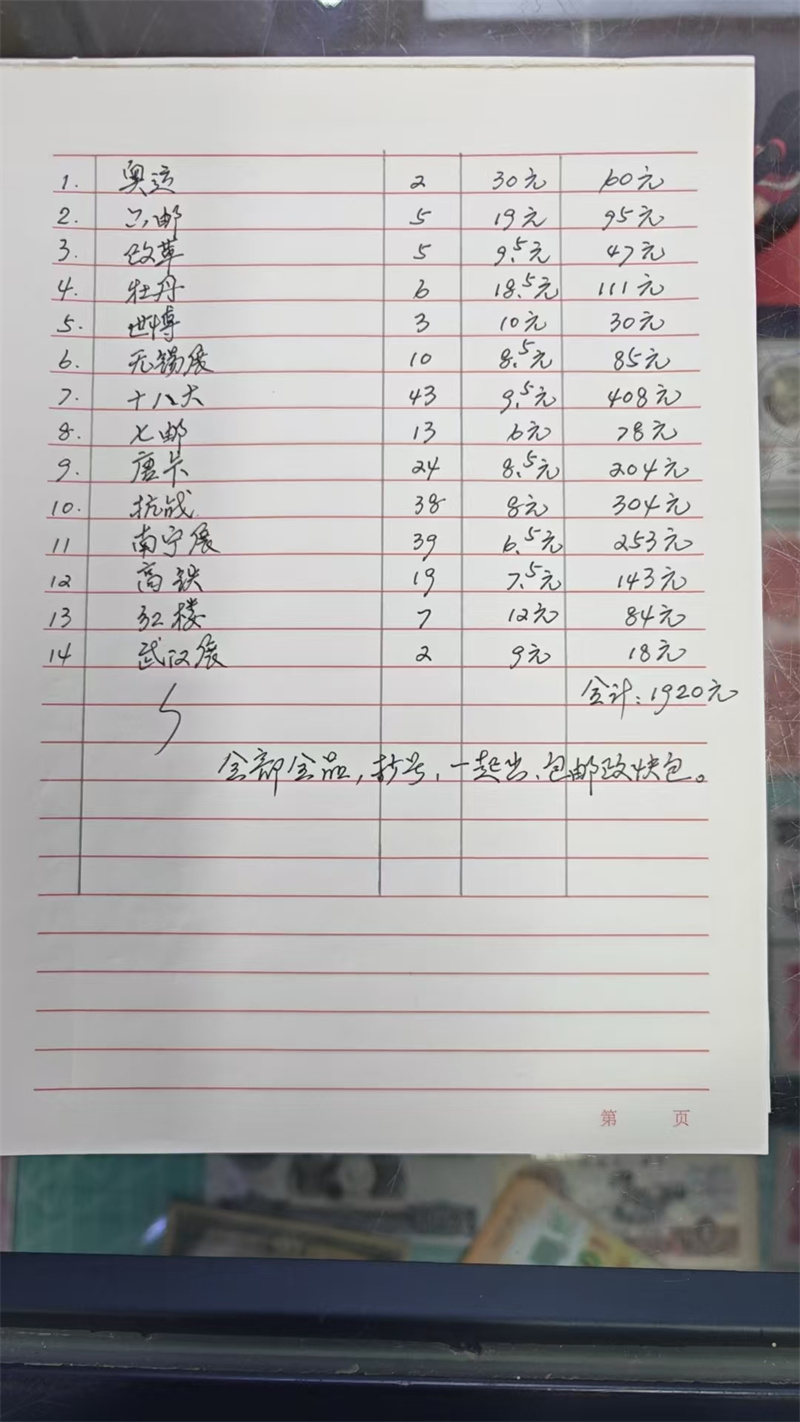 1. 奥运 2 30元 60元
2. 六邮 5 19元 95元
3. 改革 5 9.5元 47元
4. 牡丹 6 18.5元 111元
5. 世博 3 10元 30元
6. 无锡展 10 8.5元 85元
7. 十八大 43 9.5元 408元
8. 七邮 13 6元 78元
9. 唐卡 24 8.5元 204元
10. 抗战 38 8元 304元
11 南宁展 39 6.5元 253元
12 高铁 19 7.5元 143元
13 红楼 7 12元 84元
14 武汉展 2 9元 18元
合计:1920元
全部全品,抄号,一起出、包邮政快包。
第 页